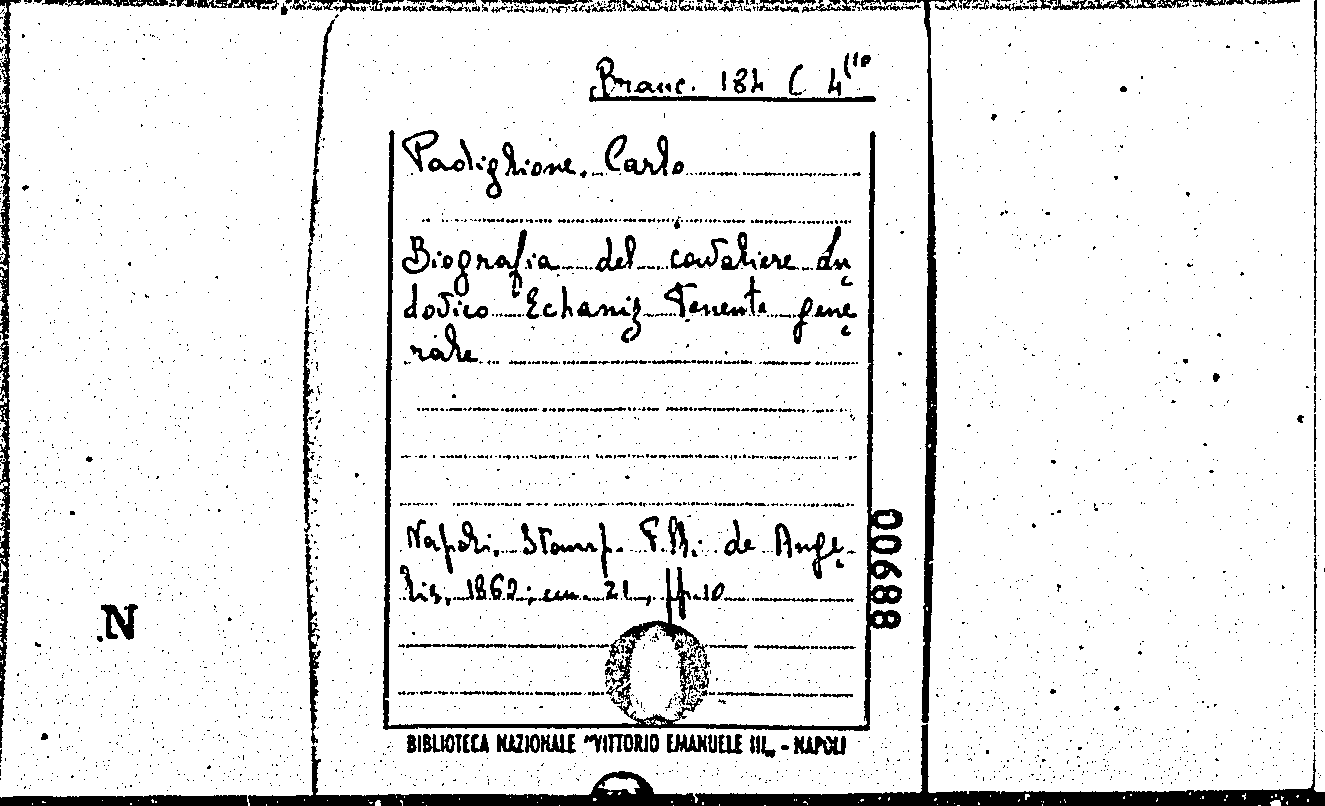 Branc. 184 C 4(10
Padiglione, Carlo
Biografia del cavaliere Lu
dovico Echaniz Tenente gene
rale
Napoli, Stamp. F.lli de Ange
lis, 1862; cm. 21, pp. 10
00688
N
BIBLIOTECA NAZIONALE "VITTORIO EMANUELE III„ - NAPOLI